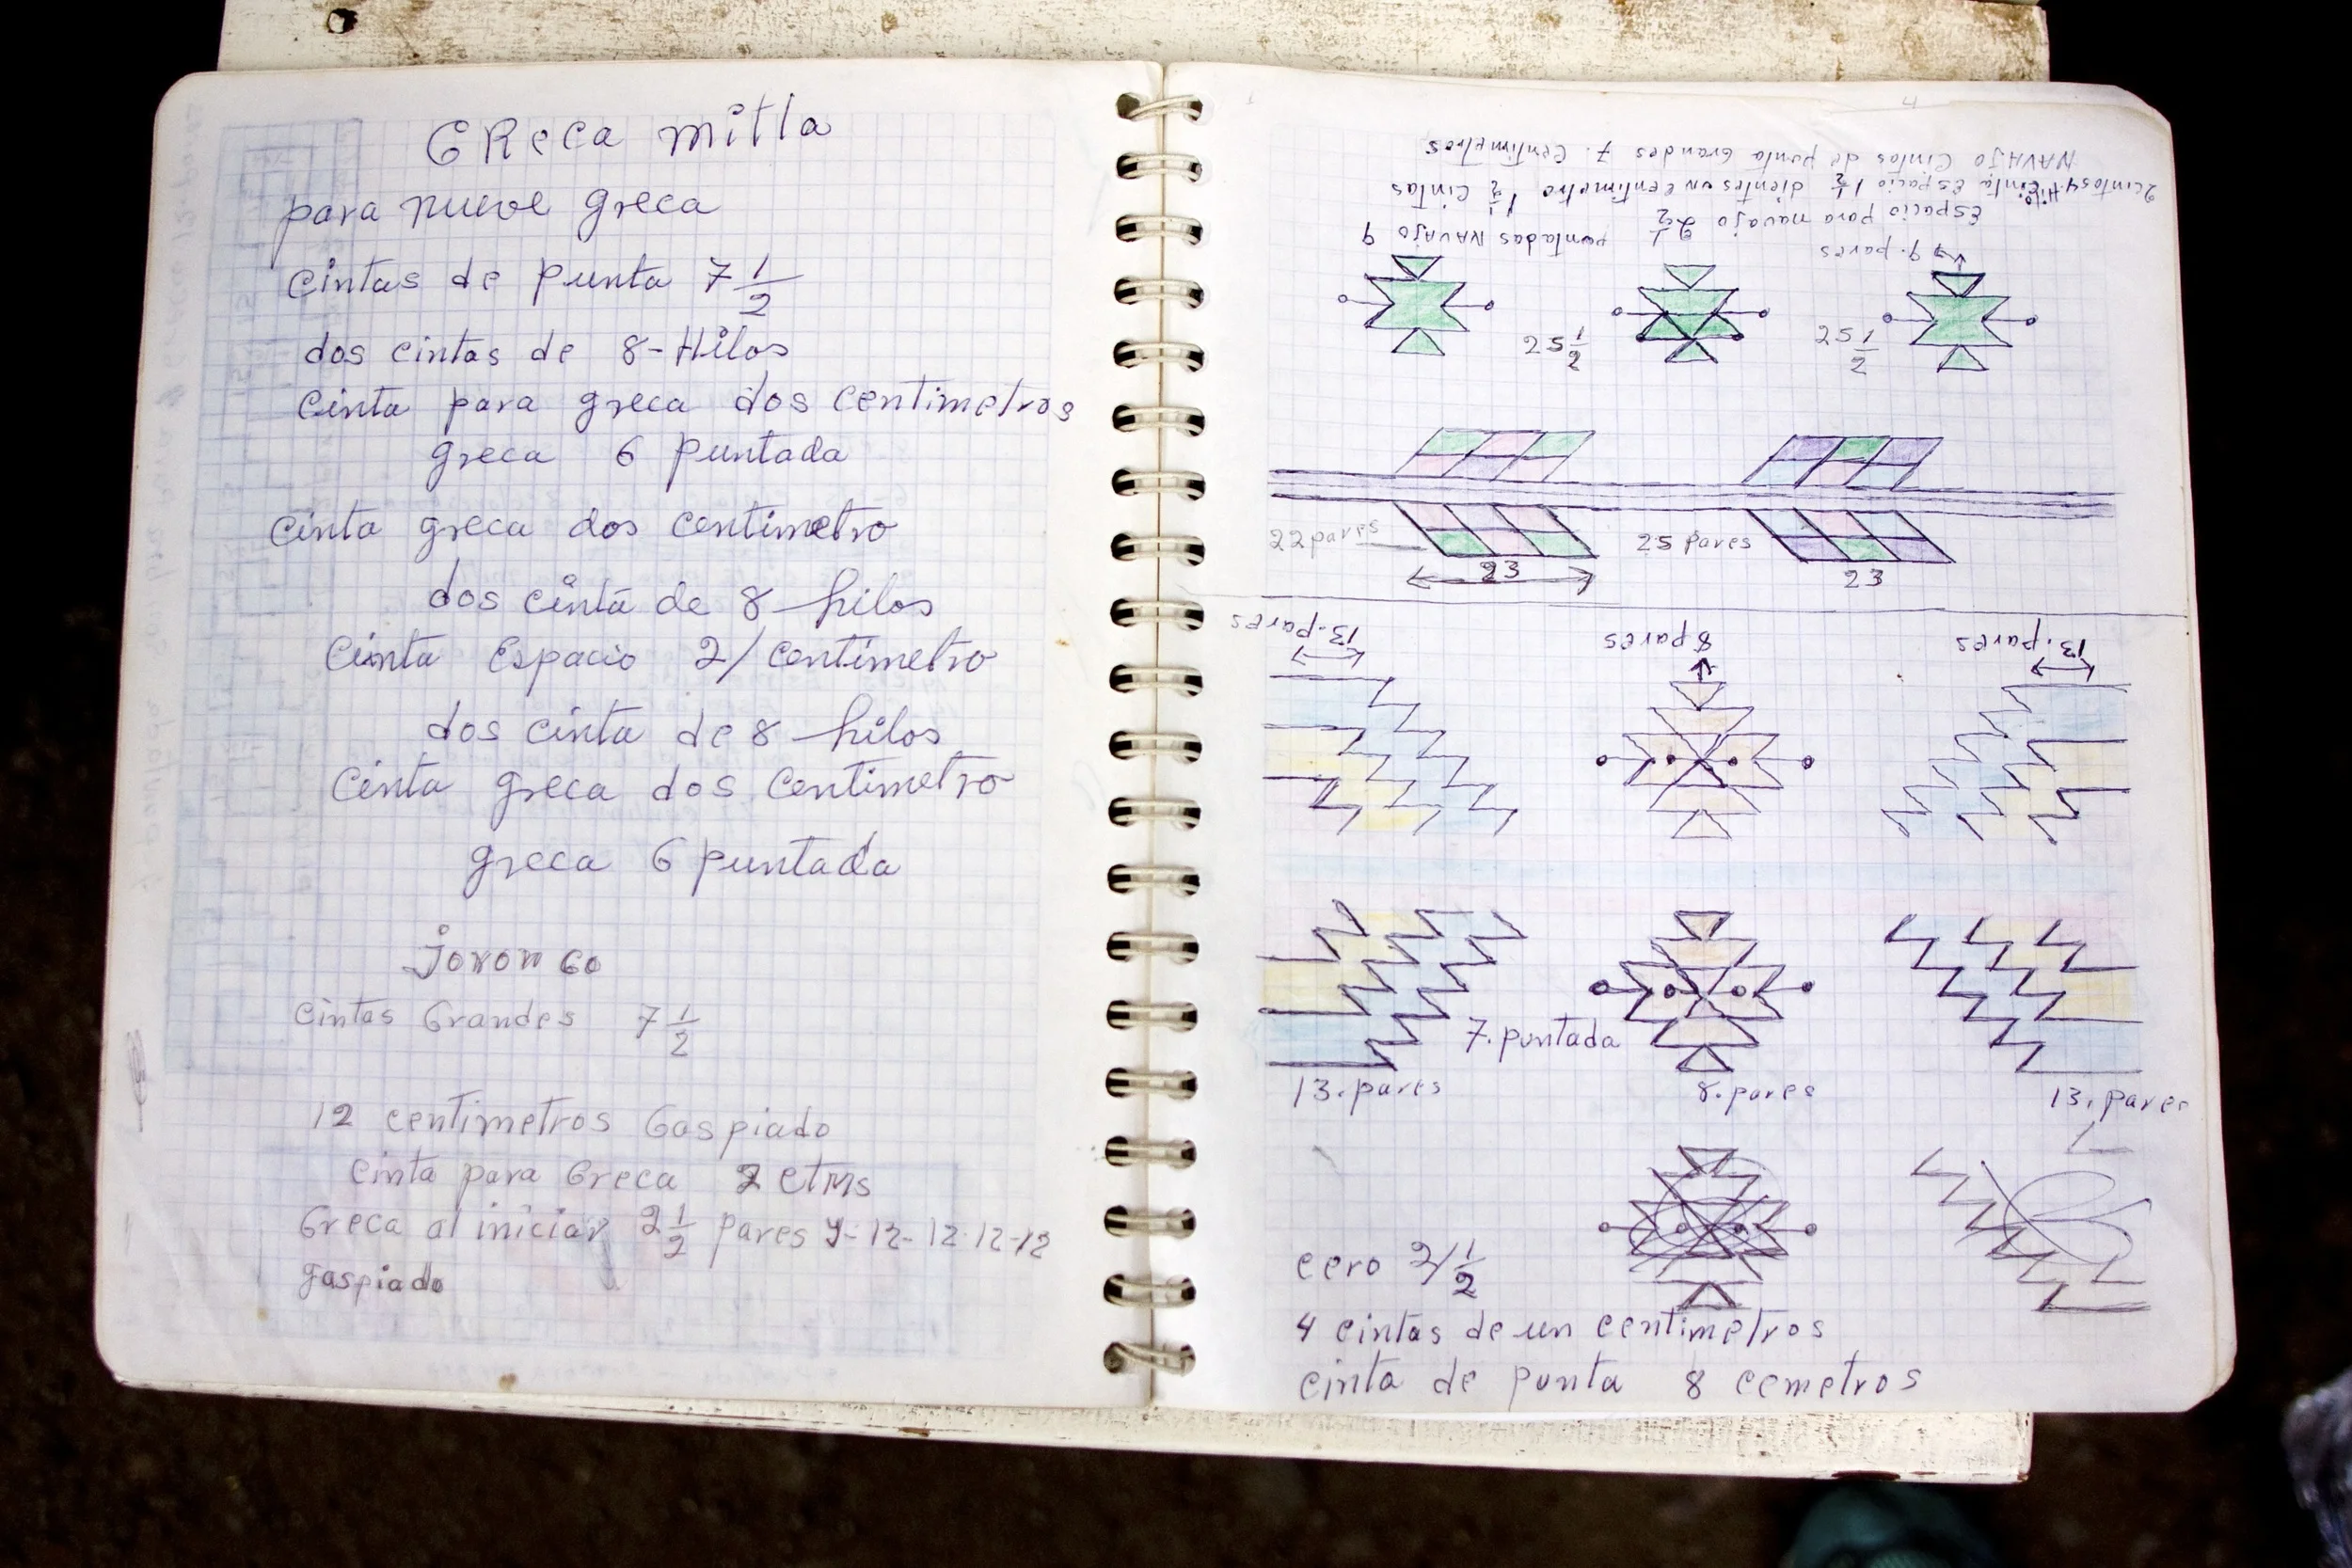 GReca mitla
para nueve greca
cintas de punta 7 1/2
dos cintas de 8-Hilos
cinta para greca dos centimetros
greca 6 puntada
cinta greca dos centimetro
dos cinta de 8 hilos
cinta Espacio 2/centimetro
dos cinta de 8 hilos
cinta greca dos centimetro
greca 6 puntada
Joron Go
cintas Grandes 7 1/2
12 centimetros Gaspiado
cinta para Greca 2 ctms
Greca al iniciar 2 1/2 pares 9-12-12-12-12
gaspiado
NAVAJO cintas de punta Grandes 7. centimetros
2 cintas 4 Hilo cinta Espacio 1 1/2 dientes un centimetro 1 1/2 cintas
Espacio para navajo 2 1/2 puntadas NAVAJO 9
9. pares
25 1/2
25 1/2
22 pares
23
25 pares
23
13. pares
8 pares
13. pares
7. puntada
13. pares
8. pares
13. pares
cero 2/ 1/2
4 cintas de un centimetros
cinta de punta 8 cemetros